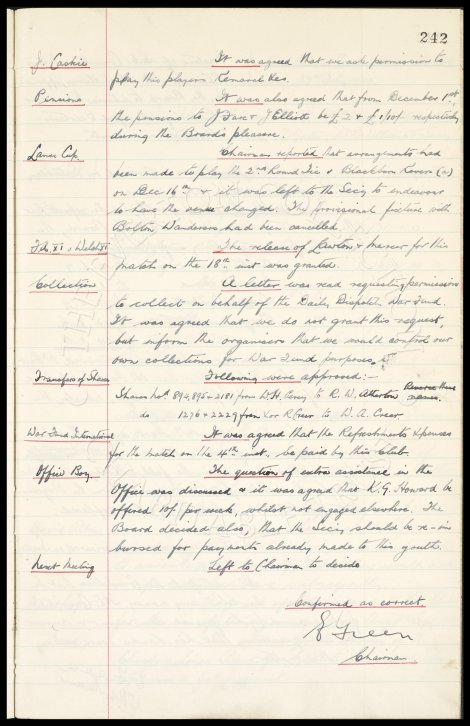 242
J. Caskie It was agreed that we ask permission to
play this player v Kemaral Res.
Pensions It was also agreed that from December 1st
the pensions to J Farr & J Elliott be £2 & £1/10/- respectively
during the Board's pleasure.
Lancs Cup. Chairman reported that arrangements had
been made to play the 2nd Round Tie v Blackburn Rovers (a)
on Dec 16th & it was left to the Secy to endeavour
to have the venue changed. The provisional fixture with
Bolton Wanderers had been cancelled.
F.A. XI v Welsh XI The release of Lawton & Mercer for this
match on the 18th inst was granted.
Collection A letter was read requesting permission
to collect on behalf of the Daily Dispatch War Fund.
It was agreed that we do not grant this request,
but inform the organisers that we would control our
own collections for War Fund purposes.
Transfers of Shares Following were approved:-
Shares Nos. 894,895 & 2181 from W.H. to R. W. Atherton Reverse these names.
do 1276 & 2229 from R Crew to W. A. Crew
War Fund International It was agreed that the Refreshments expenses
for the match on the 4th inst. be paid by this Club.
Office Boy. The question of extra assistance in the
Office was discussed & it was agreed that K. G. Howard be
offered 10/- per week, whilst not engaged elsewhere. The
Board decided also, that the Secy should be re-im
bursed for payments already made to this youth.
Next Meeting Left to Chairman to decide
Confirmed as correct.
E Green
Chairman.